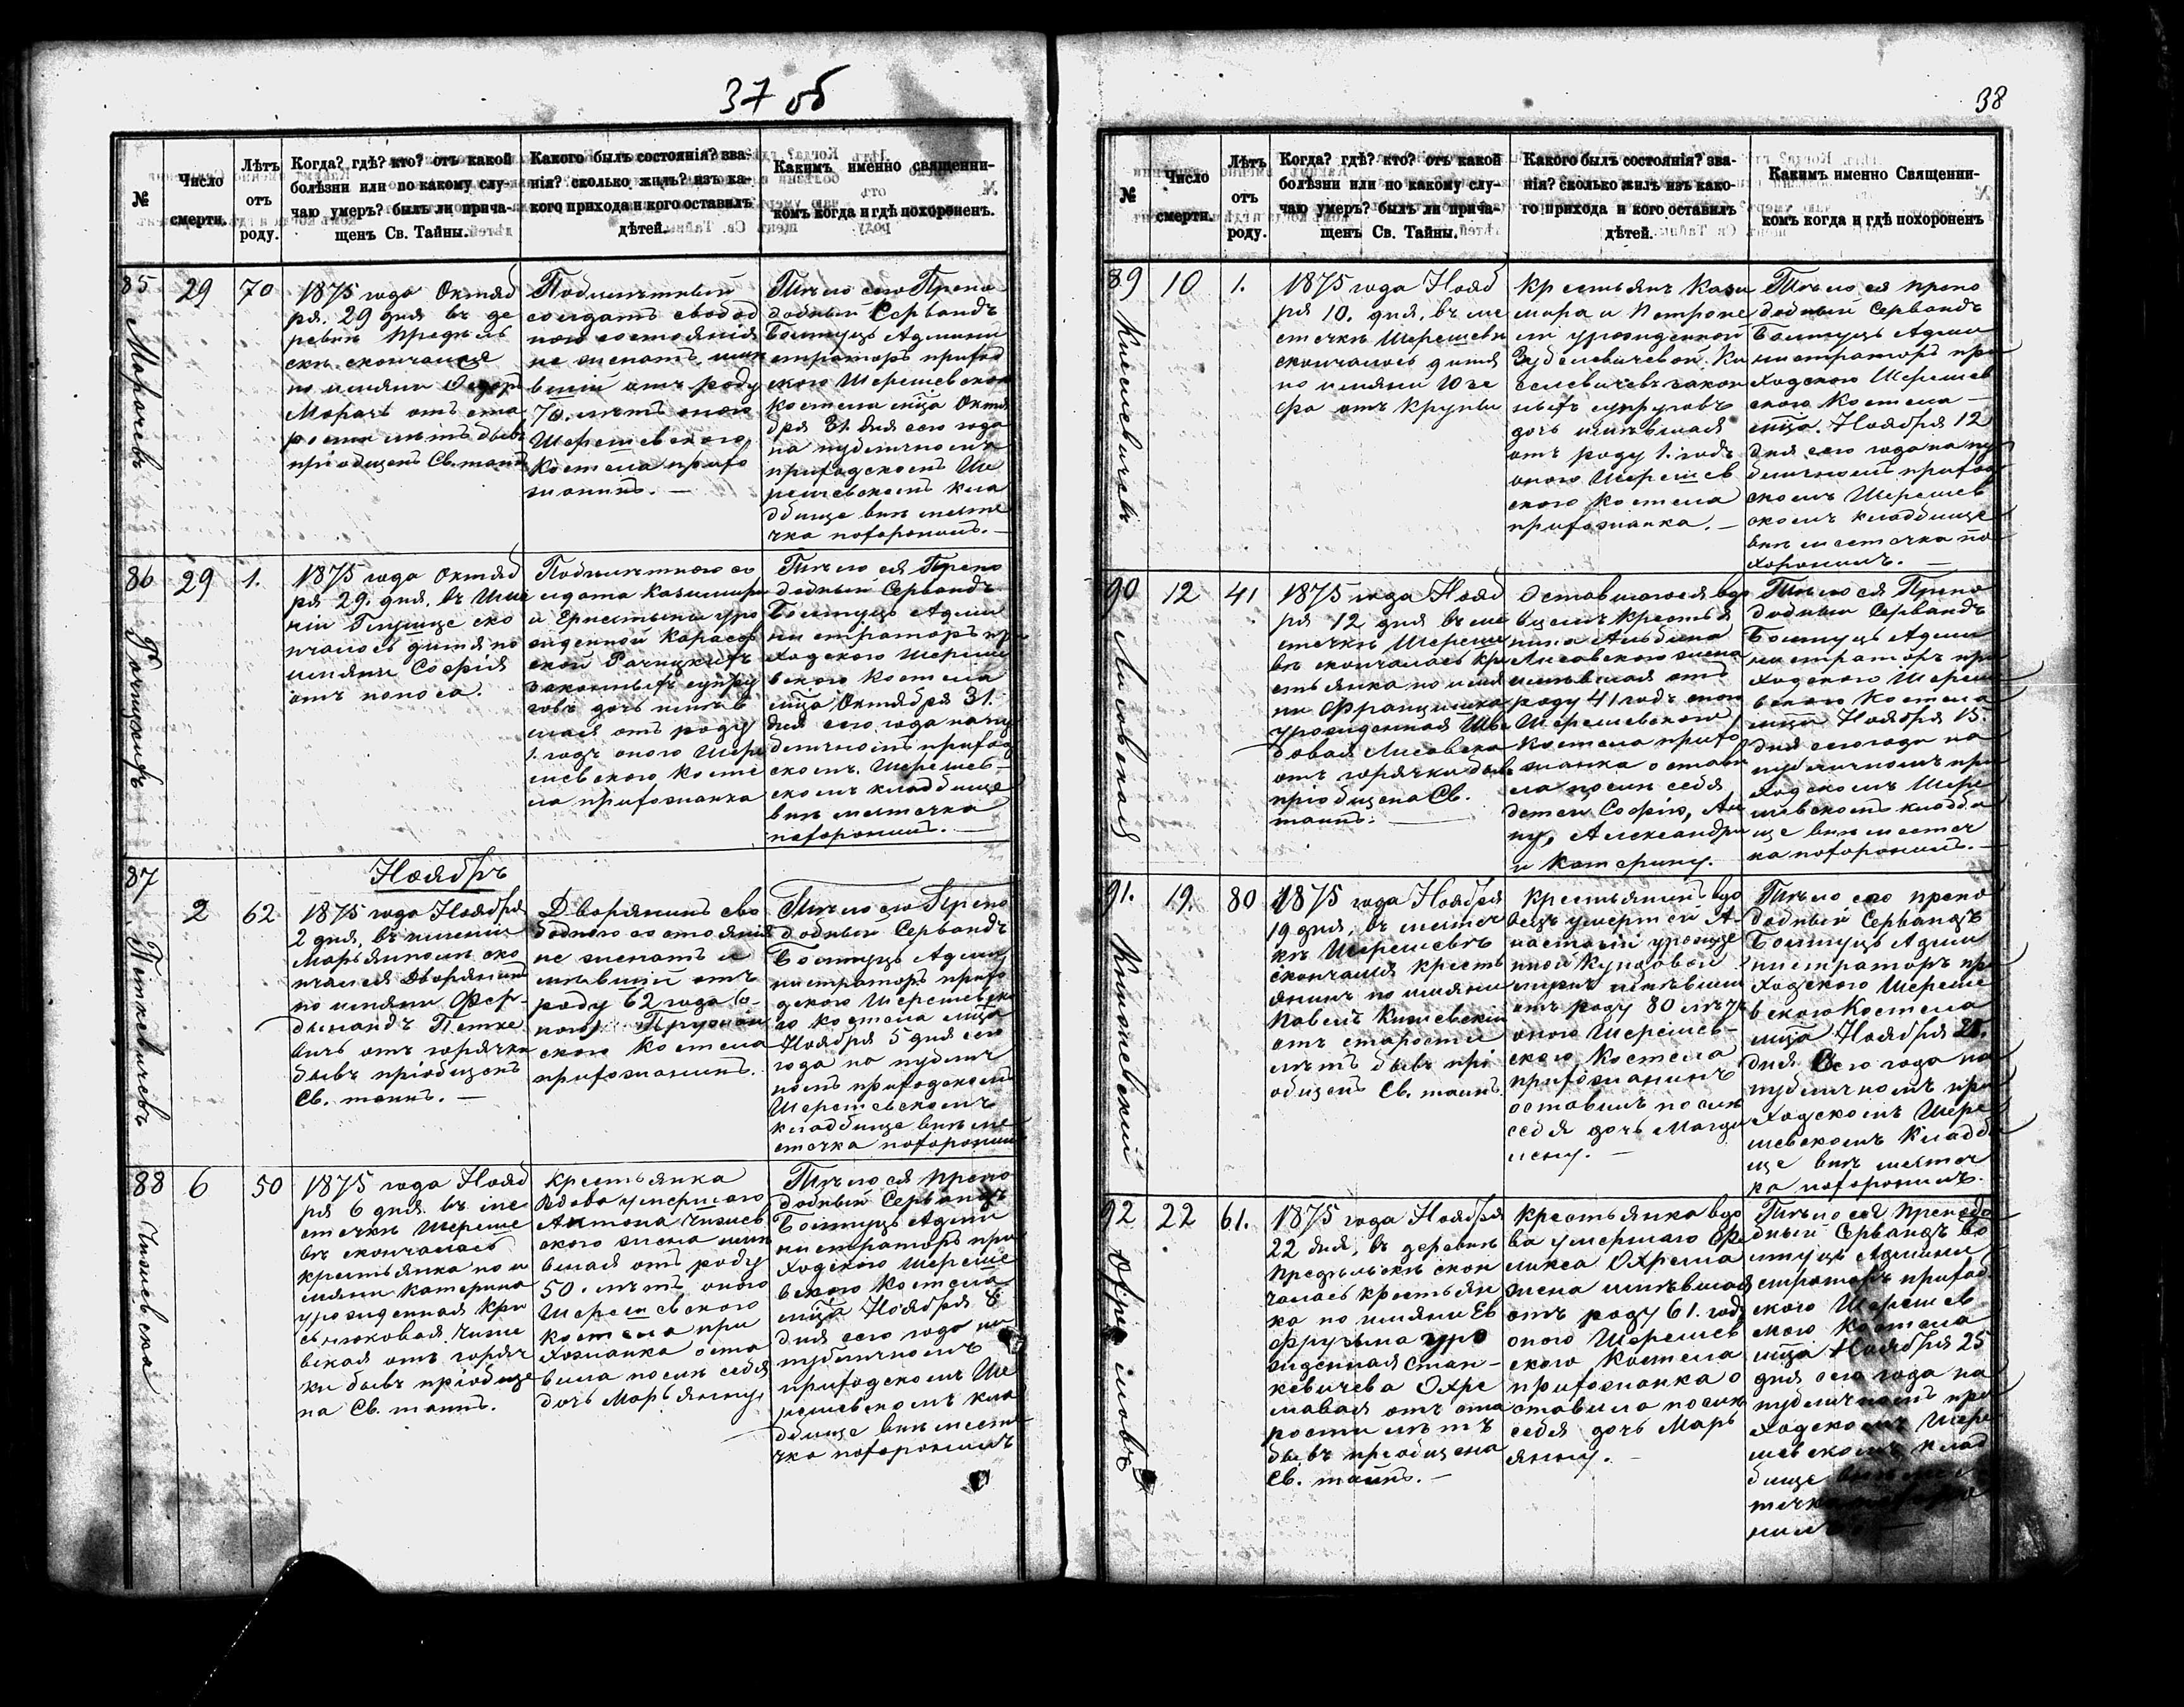 37 об
№
Число
смерти.
Лѣтъ
отъ
роду.
Когда? гдѣ? кто? отъ какой
болѣзни или по какому слу-
чаю умеръ? былъ ли прича-
щенъ Св. Тайны.
Какого былъ состоянія? зва-
нія? сколько жилъ? изъ ка-
кого прихода и кого оставилъ
дѣтей.
Какимъ именно священни-
комъ когда и гдѣ похороненъ.
85
Морочевъ
29
70
1875 года Октяб
ря. 29 дня въ де
ревнѣ Предѣль
скѣ скончался
по имяни
Морачъ отъ ста
рости лѣтъ бывъ
пріобщенъ Св. таинъ
Подлѣтный
солдатъ свобод
ного состоянія
не женатъ имѣ
вшій отъ роду
70. лѣтъ оного
Шерешевского
костела прихо
жанинъ. —
Тѣло его Препо
добный Сервандъ
Болтуць Админи
страторъ приход
ского Шерешевского
Костела мѣца Октя
бря 31. дня сего года
на публичномъ
приходскомъ Ше
решевскомъ кла
дбище внѣ месте
чка похоронилъ. —
86
29
1.
1875 года Октяб
ря 29. дня. въ
Глушце ско
нчалось дитя по
имяни Софія
отъ поноса.
лдата Казимира
и Ернестыны уро
жденной
ской Рачицкихъ
законныхъ супру
говъ дочь имѣв
шая отъ роду
1. годъ оного Шере
шевского Косте
ла прихожанка
Тѣло ея Препо
добный Сервандъ
Болтуць Адми
нистраторъ при
ходского Шереше
вского Костела
мѣца Октября 31.
дня сего года на пу
бличномъ приход
скомъ. Шерешев-
скомъ кладбище
внѣ местечка
похоронилъ. —
87
Питкевичевъ
Ноябрь
2
62
1875 года Ноября
2 дня, въ имѣніи
Марьянполѣ ско
нчался Дворянинъ
по имяни Фер-
дынандъ Петке
вичъ отъ горячки
бывъ пріобщенъ
Св. таинъ. —
Дворянинъ сво
бодного состоянія
не женатъ и
мѣвшій отъ
роду 62 года
Пружан
ского Костела
прихожанинъ.
Тѣло его Препо
добный Сервандъ
Болтуць Адми
нистраторъ прихо
дского Шерешевско
го костела мѣца
Ноября 5 дня сего
года на публич
номъ приходскомъ
Шерешевскомъ
кладбище внѣ ме
стечка похоронилъ
88
Чижевская
6
50
1875 года Нояб
ря 6 дня. въ ме
стечкѣ Шереше
вѣ скончалась
крестьянка по и
мяни Катерина
урожденная Кри
сьнюковая Чиже
вская отъ горяч
ки бывъ пріобще
на Св. таинъ.
крестьянка
вдова умершаго
Антона Чижев
ского жена имѣ
вшая отъ роду
50. лѣтъ оного
Шерешевского
костела при
хожанка оста
вила послѣ себя
дочь Марьянну
Тѣло ея препо
добный Сервандъ
Болтуць Адми
нистраторъ при
ходского Шереше
вского Костела
мѣца Ноября 8
дня сего года на
публичномъ
приходскомъ Ше
решевскомъ кла
дбище внѣ месте
чка похоронилъ
38
№
Число
смерти.
Лѣтъ
отъ
роду.
Когда? гдѣ? кто? отъ какой
болѣзни или по какому слу-
чаю умеръ? былъ ли прича-
щенъ Св. Тайны.
Какого былъ состоянія? зва-
нія? сколько жилъ изъ како-
го прихода и кого оставилъ
дѣтей.
Какимъ именно Священни-
комъ когда и гдѣ похороненъ
89
Киселевичевъ
10
1.
1875 года Нояб
ря 10. дня, въ ме
стечкѣ Шерешевѣ
скончалось дитя
по имяни Юзе
фа отъ крупы
Крестьянъ Кази
мира и Петроне
ли урожденной
Ки
селевичевъ закон
ныхъ супруговъ
дочь имѣвшая
отъ роду 1. годъ
оного Шерешев
ского Костела
прихожанка. —
Тѣло ея препо
добный Сервандъ
Болтуць Адми
нистраторъ при
ходского Шерешев
ского Костела —
мѣца. Ноября 12
дня сего года на пу
бличномъ приход
скомъ Шерешев
скомъ кладбище
внѣ местечка по
хоронилъ. —
90
Лисовская
12
41
1875 года Нояб
ря 12 дня въ ме
стечкѣ Шереше
вѣ скончалась кре
стьянка по имя
ни Францишка
урожденная
Лисовска
отъ горячки бывъ
пріобщена Св.
таинъ. —
Оставшагося вдо
вцемъ крестья
нина Альбина
Лисовского жена
имѣвшая отъ
роду 41 годъ оного
Шерешевского
Костела прихо
жанка остави
ла послѣ себя
детей Софію, Ан
ну, Александру
и Катерину.
Тѣло ея Препо
добный Сервандъ
Болтуць Адми
нистраторъ при
ходского Шереше
вского Костела
мѣца Ноября 15.
дня сего года на
публичномъ при
ходскомъ Шере
шевскомъ кладби
ще внѣ местеч
ка похоронилъ. —
91.
19.
80
1875 года Ноября
19 дня, въ местеч
кѣ Шерешевѣ
скончался кресть
янинъ по имяни
Павелъ
отъ старости
лѣтъ бывъ прі
общенъ Св. таинъ.
Крестьянинъ вдо
вецъ умершей А-
настасіи урожде
нной
мужъ имѣвшій
отъ роду 80 лѣтъ
оного Шерешев-
ского Костела
прихожанинъ
оставилъ послѣ
себя дочь Магда
лену. —
Тѣло его препо
добный Сервандъ
Болтуць Адми
нистраторъ при
ходского Шереше
вского Костела
мѣца Ноября
дня сего года на
публичномъ при
ходскомъ Шере
шевскомъ Кладби
ще внѣ местеч
ка похоронилъ.
92
22
61.
1875 года Ноября
22 дня, въ деревнѣ
Предѣльскѣ скон
чалась крестьян
ка по имяни Ев
фрузына уро
жденная Стан-
кевичева Охре
мовая отъ ста
рости лѣтъ
бывъ пріобщена
Св. таинъ. —
Крестьянка вдо
ва умершаго Фе
ликса Охрема
жена имѣвшая
отъ роду 61. годъ
оного Шерешев
ского Костела
прихожанка о
ставила послѣ
себя дочь Марь
янну. —
Тѣло ея Преподо
бный Сервандъ Бо
лтуць Админи
страторъ приход
ского Шерешев
ского Костела
мѣца Ноября 25
дня сего года на
публичномъ при
ходскомъ Шере
шевскомъ клад
бище внѣ мес
течка похоро
нилъ. —